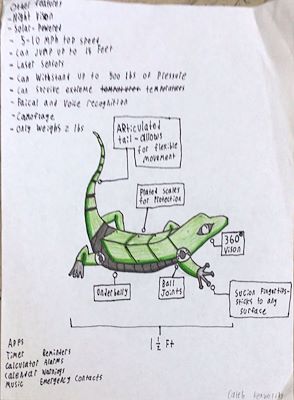 Other features
- Night Vison
- Solar-Powered
- 5-10 MPH top speed
- Can Jump up to 15 Feet
- Laser Sensors
- Can Withstand up to 500 lbs of Pressure
- Can Survive extreme temperatures
- Facial and Voice recognition
- Camoflage
- Only Weighs 2 lbs
ARticulated
tail-allows
for flexible
movement
Plated scales
for Protection
360°
Vison
Underbelly
Ball
Joints
Sucion Fingertips-
sticks to any
surface
1 1/2 Ft
Apps
Timer Reminders
Calculator Alarms
Calendar Warnings
Music Emergency Contacts
Caleb